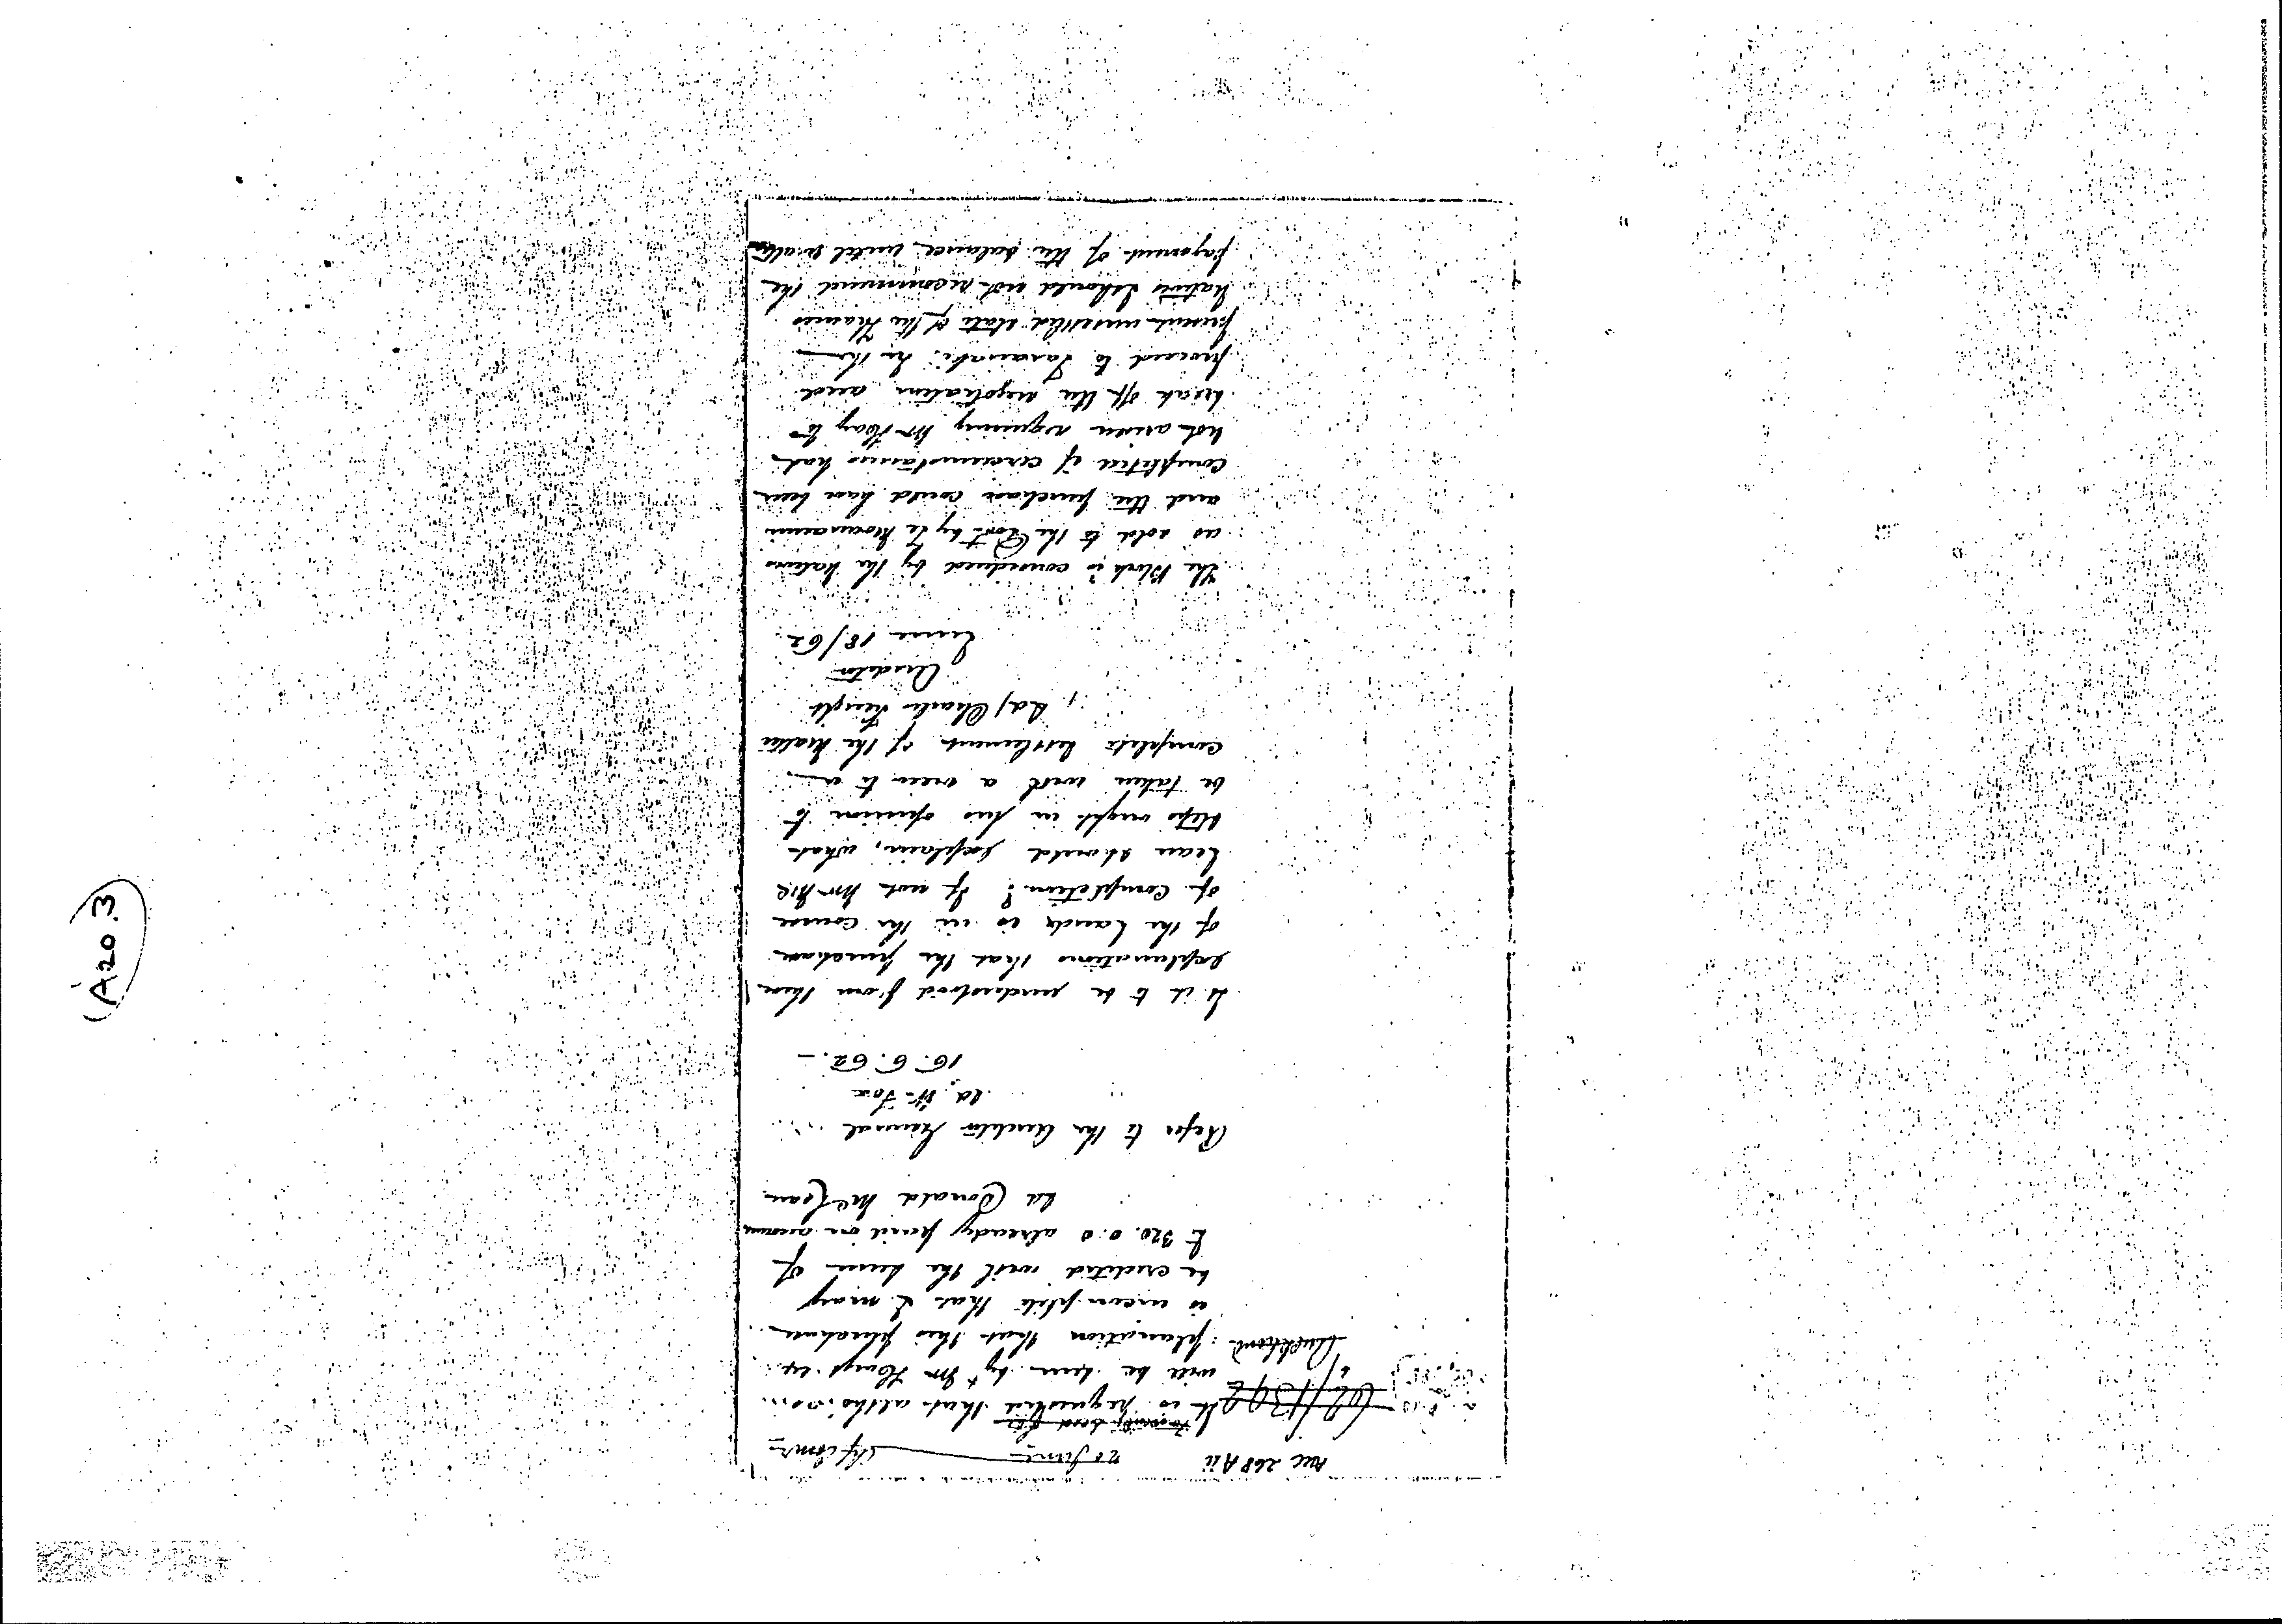 AUC 268 A ii 20 June
It is requested that altho
62/1392
will be seen by Mr Hays ex
Auckland planation that this purchase
is incomplete that I may
be credited with the sum of
£320.0.0 already paid on account
sd Donald McLean
Refer to the Auditor General
sd. W. Fox
16.6.62.—
Is it to be understood from these
explanations that the purchase
of the Lands is in the course
of completion? If not Mr Mc
Lean should explain, what
steps ought in his opinion to
be taken with a view to a
complete settlement of the matter
sd/ Charles Knight
Auditor
June 18/62
The Block is considered by the Natives
as sold to the Govt by Te Moananui
and the purchase could have been
completed if circumstances had
not arisen requiring Mr Hay to
break off the negotiation and
proceed to Taranaki. In the
present unsettled state of the Thames
Natives I should not recommend the
payment of the balance until matters
(A20.3)